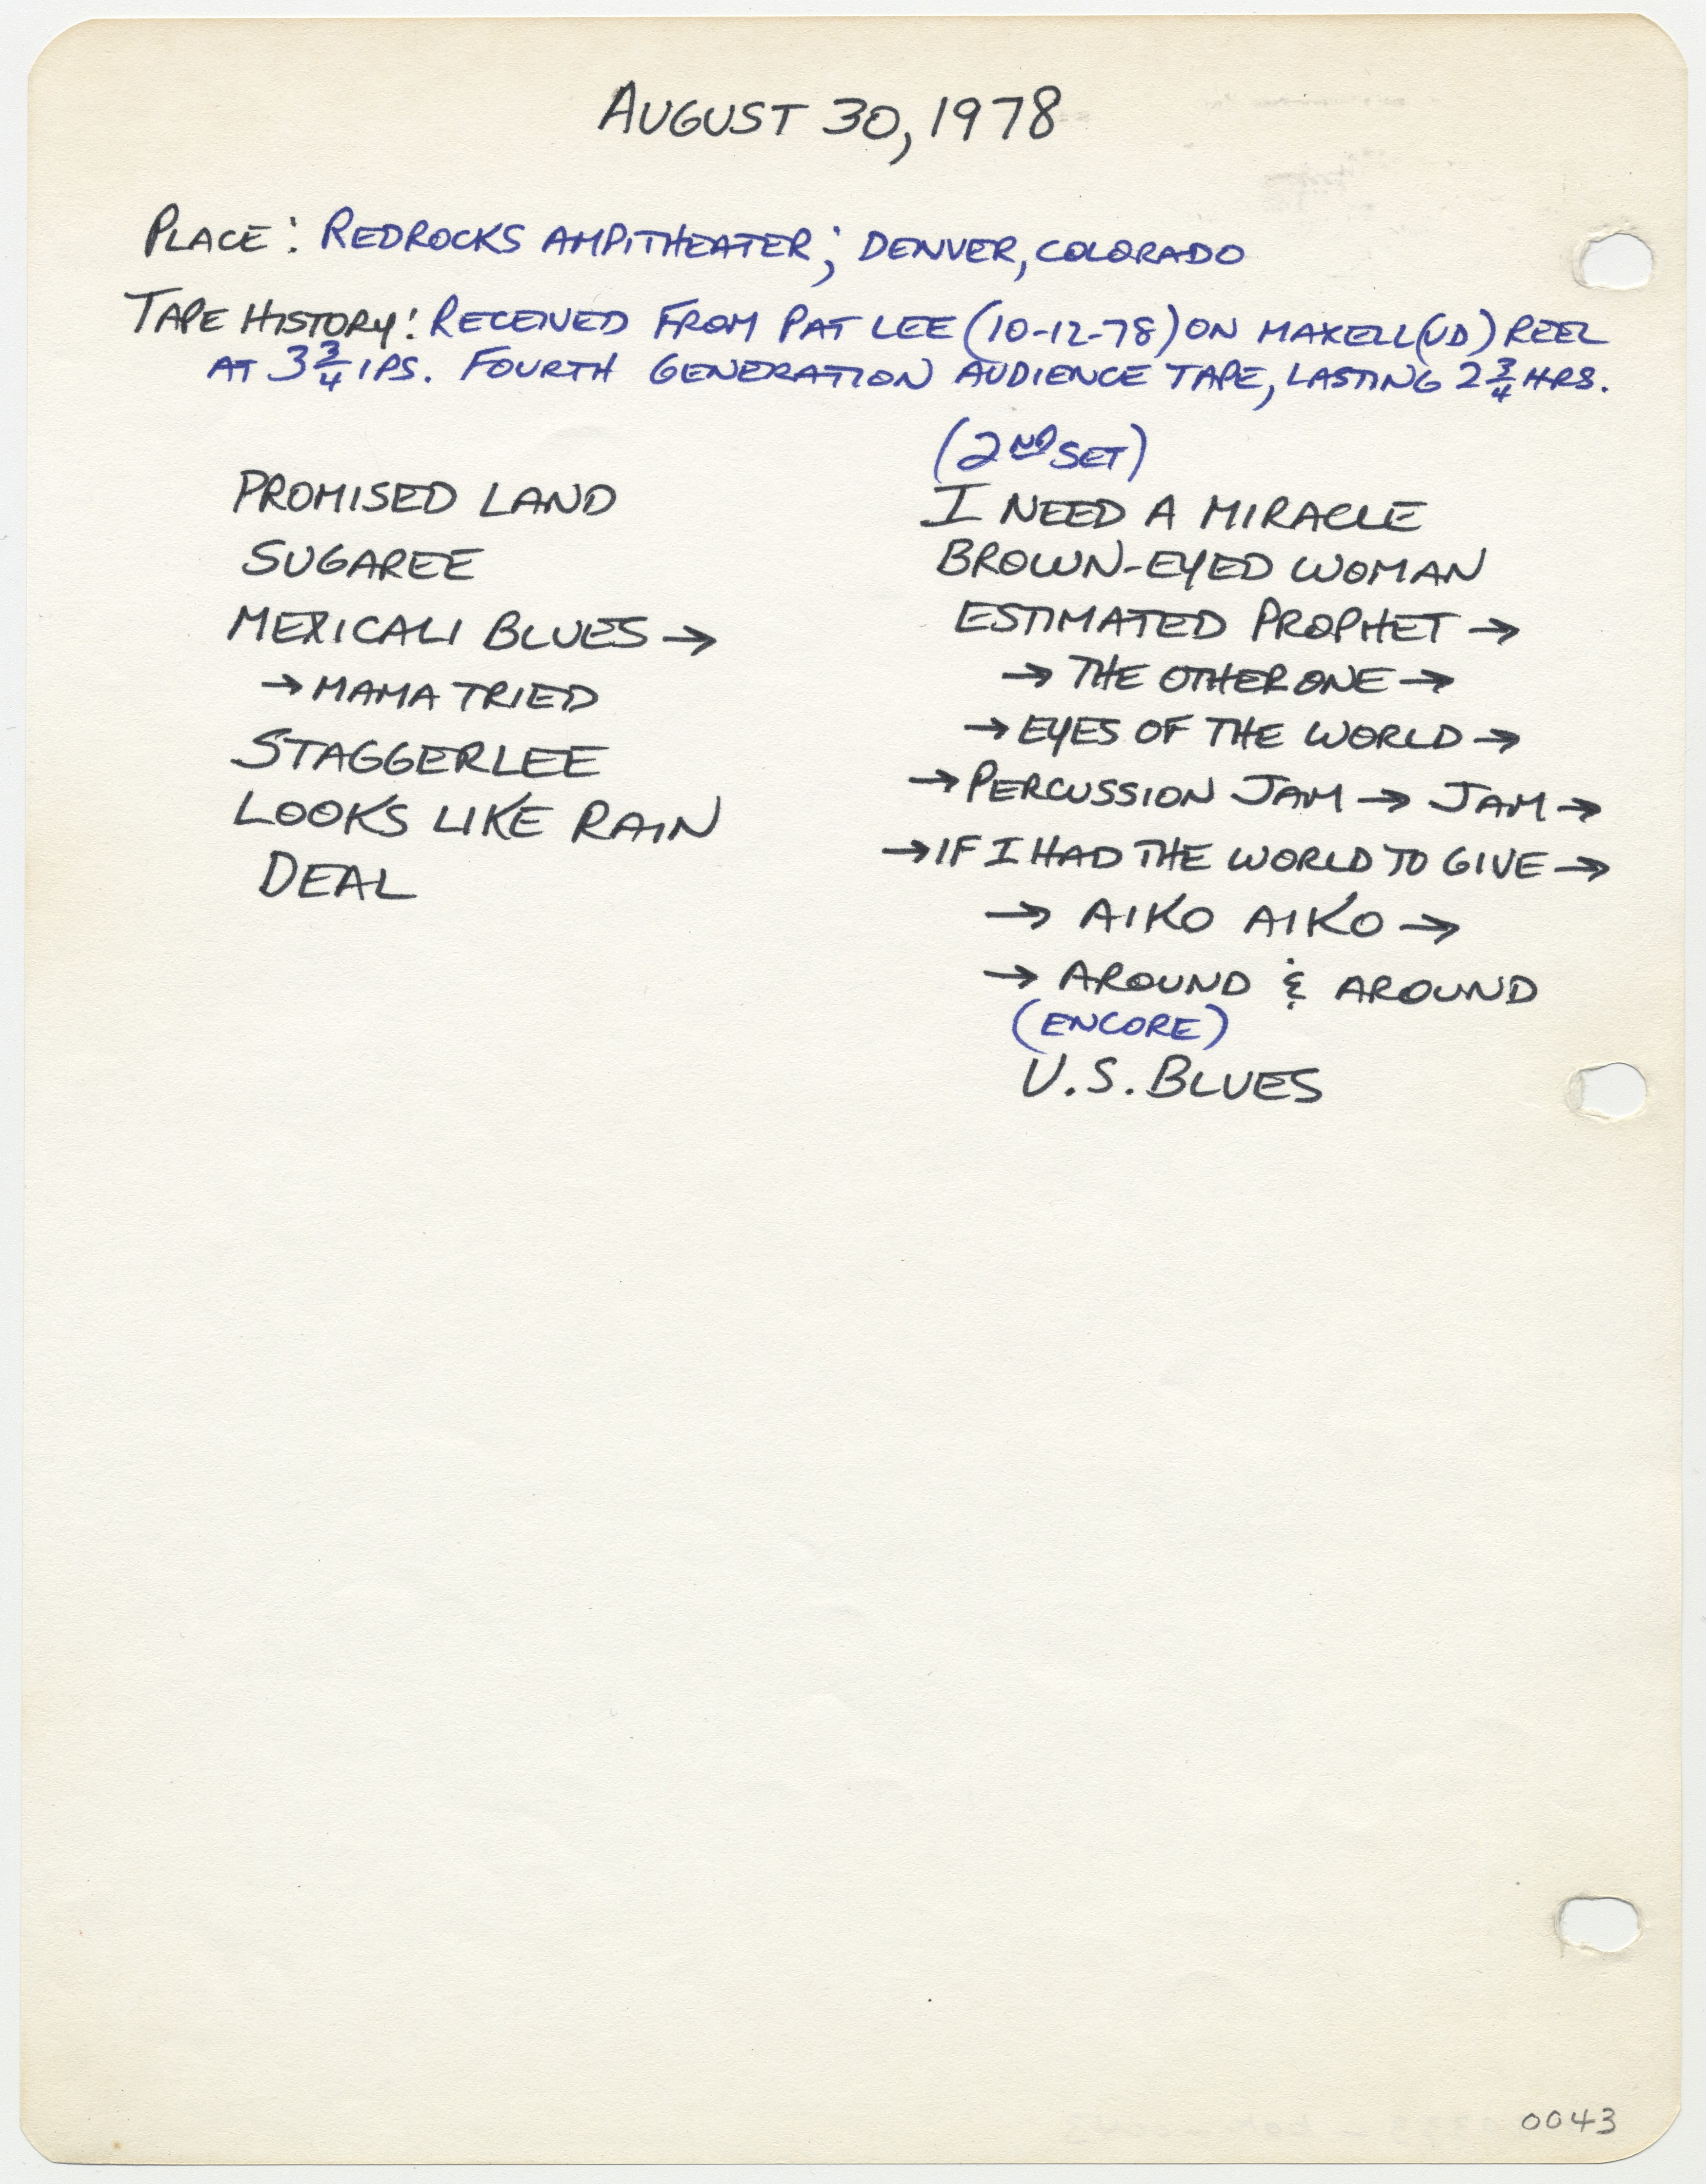 AUGUST 30, 1978
PLACE: REDROCKS AMPITHEATER; DENVER, COLORADO
TAPE HISTORY: RECEIVED FROM PAT LEE (10-12-78) ON MAXELL (UD) REEL
AT 3 3/4 IPS. FOURTH GENERATION AUDIENCE TAPE, LASTING 2 3/4 HRS.
PROMISED LAND
SUGAREE
MEXICALI BLUES →
→ MAMA TRIED
STAGGERLEE
LOOKS LIKE RAIN
DEAL
(2ND SET)
I NEED A MIRACLE
BROWN-EYED WOMAN
ESTIMATED PROPHET →
→ THE OTHER ONE →
→ EYES OF THE WORLD →
→ PERCUSSION JAM → JAM →
→ IF I HAD THE WORLD TO GIVE →
→ AIKO AIKO →
→ AROUND & AROUND
(ENCORE)
U.S. BLUES
0043